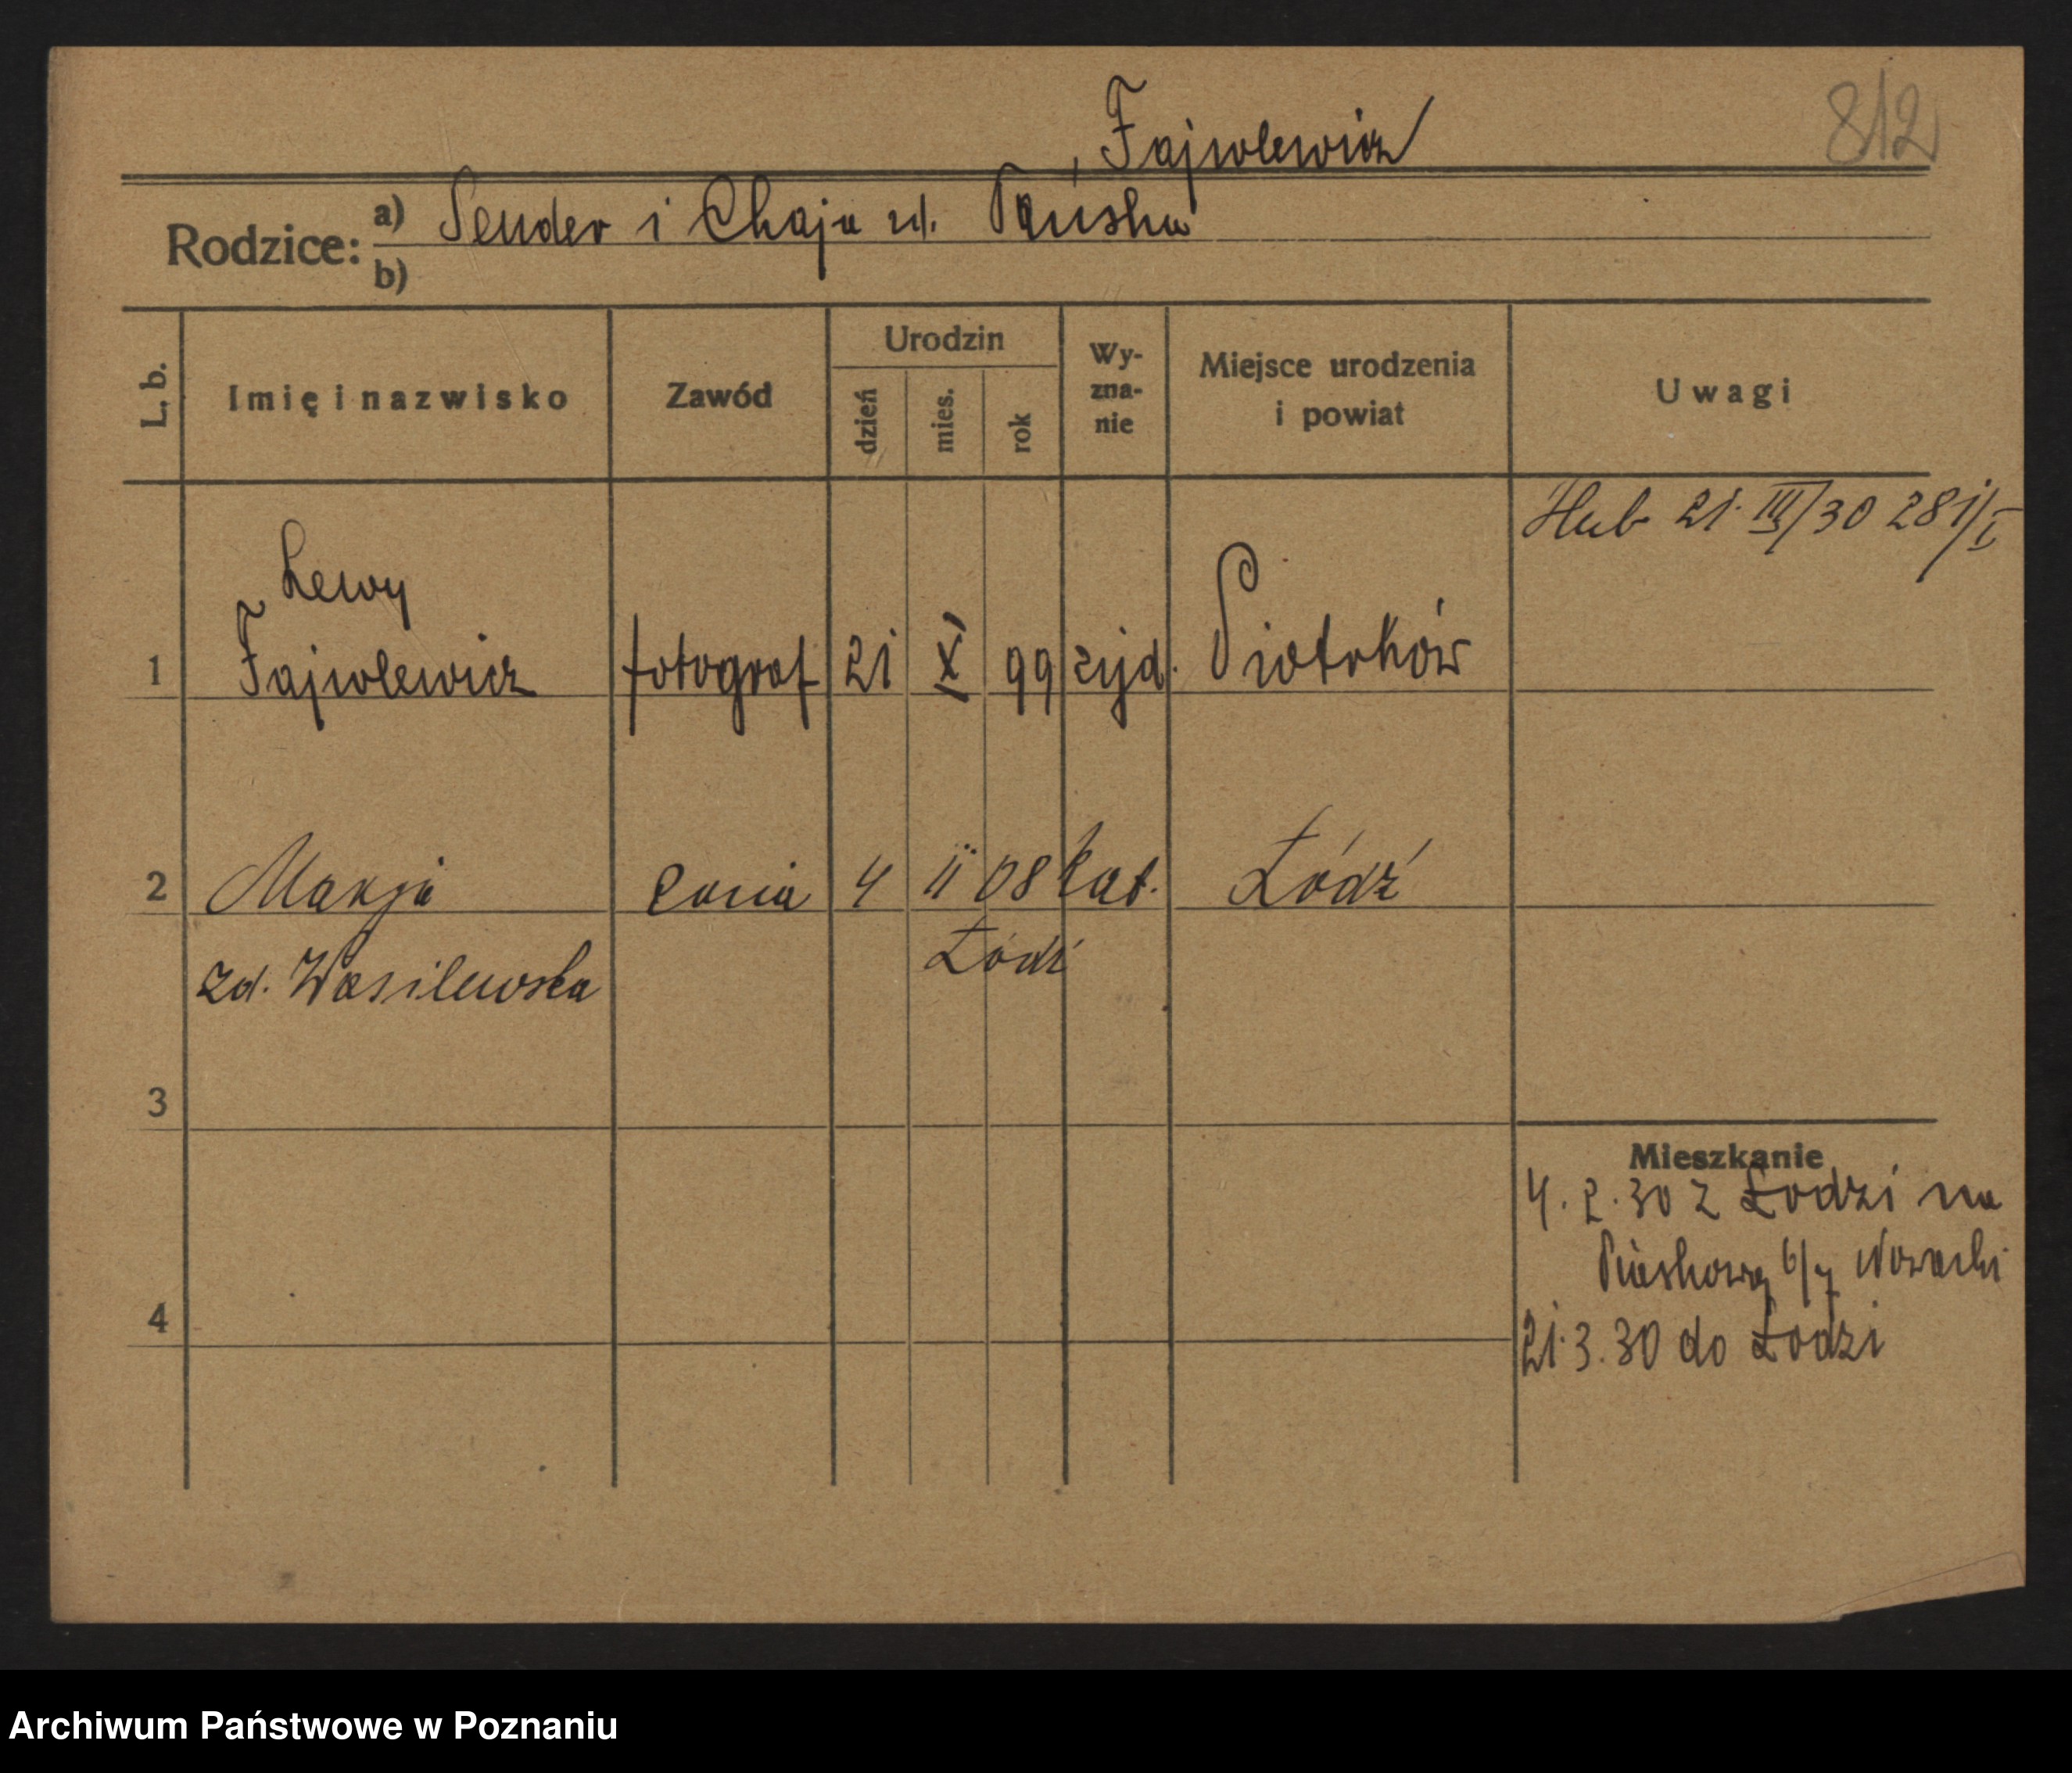 Fajwlewicz 812
Rodzice: a) Sender i Chaja zd. Pańska
b)
L. b. Imię i nazwisko Zawód Urodzin dzień mies. rok Wy-zna-nie Miejsce urodzenia i powiat Uwagi
21. III/30 281/I
Lewy
1 Fajwlewicz fotograf 21 X 99 zyd. Piotrków
2 Marja żona 4 II 08 kat. Łódź
zd. Wasilewska Łódź
3
Mieszkanie
4. 2. 30 z Łodzi na
Piaskową 6/7 Nowacki
4
21. 3. 30 do Łodzi
Archiwum Państwowe w Poznaniu